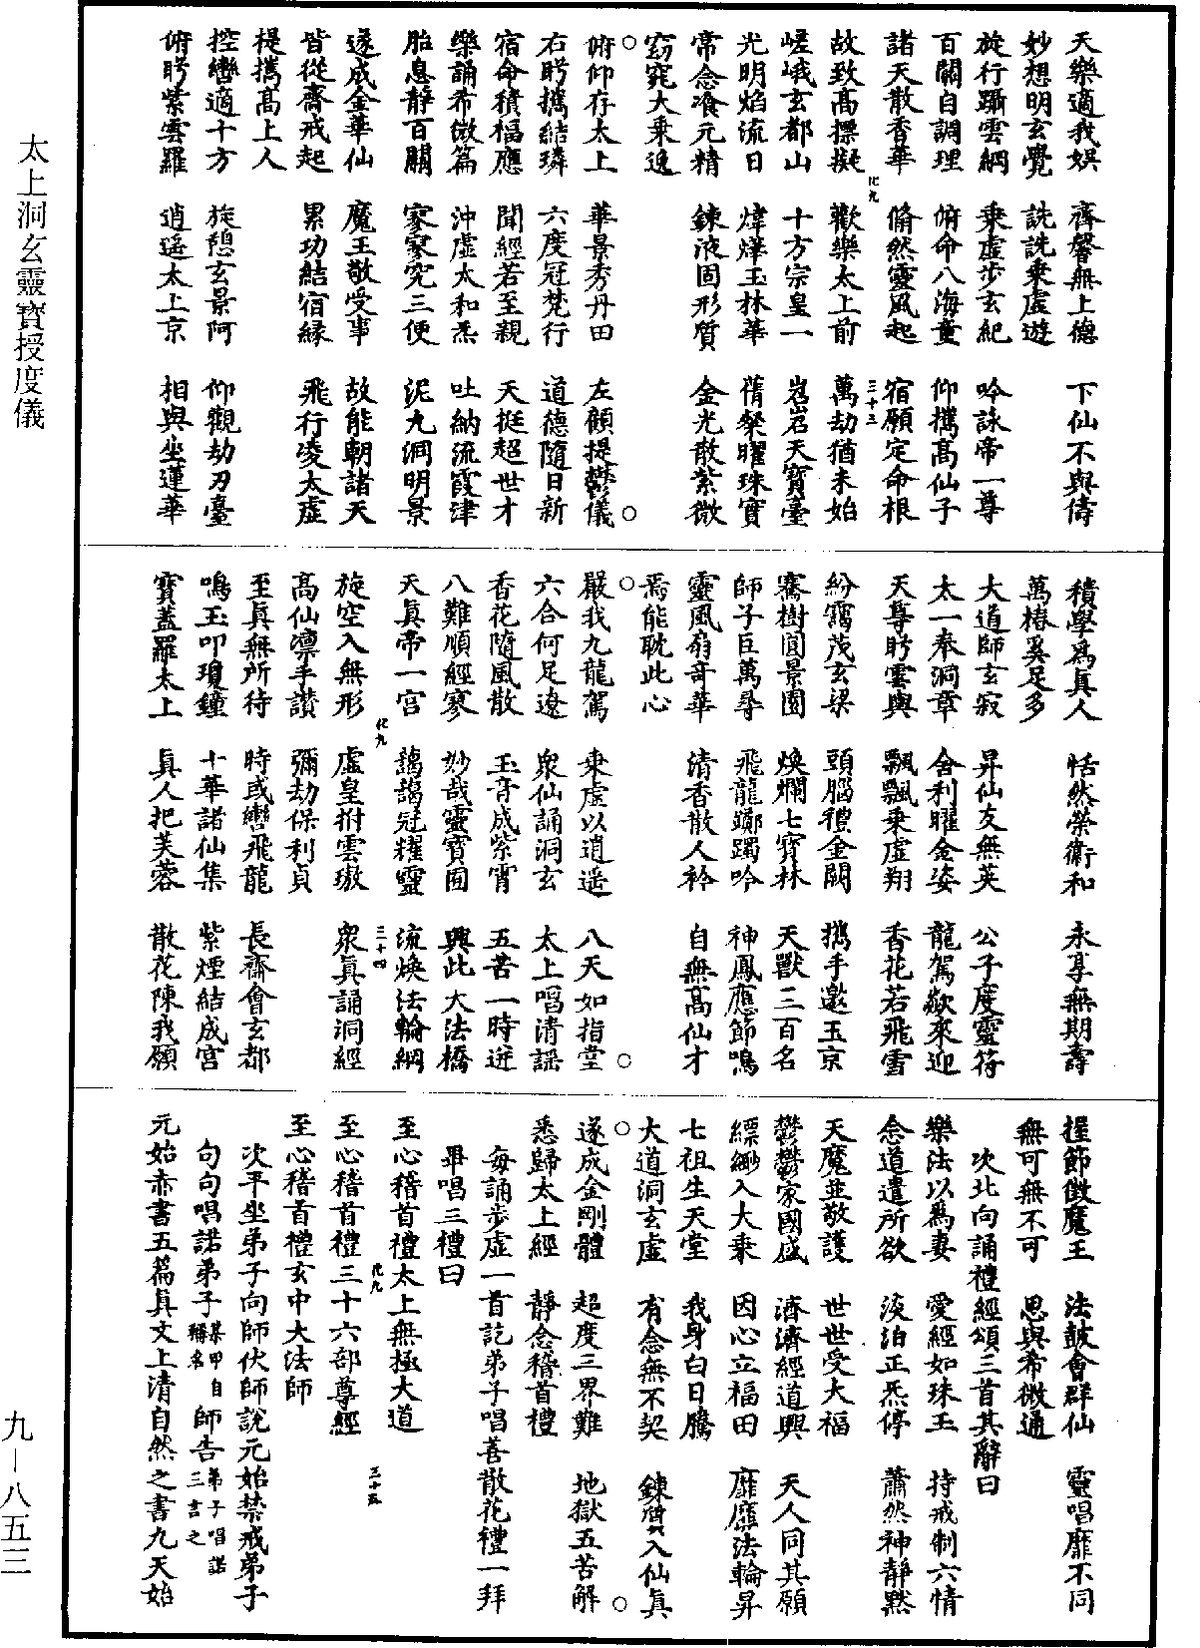 太上洞玄靈寶授度儀
天樂適我娯　齊馨無上德　下仙不與儔
妙想明玄覺　詵詵乗虛遊
旋行躡雲綱　乗虛步玄紀　吟詠帝一尊
百關自調理　俯命八海童　仰攜髙仙子
諸天散香華　翛然靈風起　宿願定命根
故致髙摽擬　歡樂太上前　萬劫猶未始
化九　三十三
嵯峨玄都山　十方宗皇一　岧岧天寶臺
光明焰流日　煒燁玉林華　蒨粲曜珠實
常念飡元精　鍊液固形質　金光散紫微
窈窕大乗逸
○
俯仰存太上　華景秀丹田　左顧提鬱儀　○
右眄攜結璘　六度冠梵行　道德隨日新
宿命積福應　聞經若至親　天挺超世才
樂誦希微篇　沖虛太和炁　吐納流霞津
胎息靜百關　寥寥究三便　泥丸洞明景
遂成金華仙　魔王敬受事　故能朝諸天
皆從齋戒起　累功結宿緣　飛行凌太虛
提攜髙上人
控轡適十方　旋憩玄景阿　仰觀劫刃臺
俯眄紫雲羅　逍遥太上京　相與坐蓮華
積學爲眞人　恬然榮衞和　永享無期壽
萬椿奚足多
大道師玄寂　昇仙友無英　公子度靈符
太一奉洞章　舍利曜金姿　龍駕欻來迎
天尊眄雲輿　飄飄乗虛翔　香花若飛雪
紛靄茂玄梁　頭腦禮金闕　攜手邀玉京
騫樹圓景園　煥爛七寶林　天獸三百名
師子巨萬尋　飛龍躑躅吟　神鳳應節鳴
靈風扇竒華　清香散人衿　自無髙仙才
焉能耽此心
○
嚴我九龍駕　乗虛以逍遥　八天如指掌　○
六合何足遼　衆仙誦洞玄　太上唱清謡
香花隨風散　玉音成紫霄　五苦一時迸
八難順經寥　妙哉靈寶囿　興此大法橋
天眞帝一宫　藹藹冠耀靈　流煥法輪綱
化九　三十四
旋空入無形　虛皇拊雲璈　衆眞誦洞經
髙仙凛手讃　彌劫保利貞
至眞無所待　時或轡飛龍　長齋會玄都
鳴玉叩瓊鐘　十華諸仙集　紫煙結成宫
寶蓋羅太上　眞人把芙蓉　散花陳我願
握節徵魔王　法鼓會群仙　靈唱靡不同
無可無不可　思與希微通
次北向誦禮經頌三首其辭曰
樂法以爲妻　愛經如珠玉　持戒制六情
念道遣所欲　淡泊正炁停　蕭然神靜黙
天魔並敬護　世世受大福
鬱鬱家國盛　濟濟經道興　天人同其願
縹緲入大乗　因心立福田　靡靡法輪昇
七祖生天堂　我身白日騰
大道洞玄虛　有念無不契　鍊質入仙眞
○
遂成金剛體　超度三界難　地獄五苦解　○
悉歸太上經　靜念稽首禮
毎誦步虛一首訖弟子唱善散花禮一拜
畢唱三禮曰
至心稽首禮太上無極大道
化九　三十五
至心稽首禮三十六部尊經
至心稽首禮玄中大法師
次平坐弟子向師伏師說元始禁戒弟子
句句唱諾弟子某甲自稱名師告弟子唱諾三言之
元始赤書五篇眞文上清自然之書九天始
九－八五三